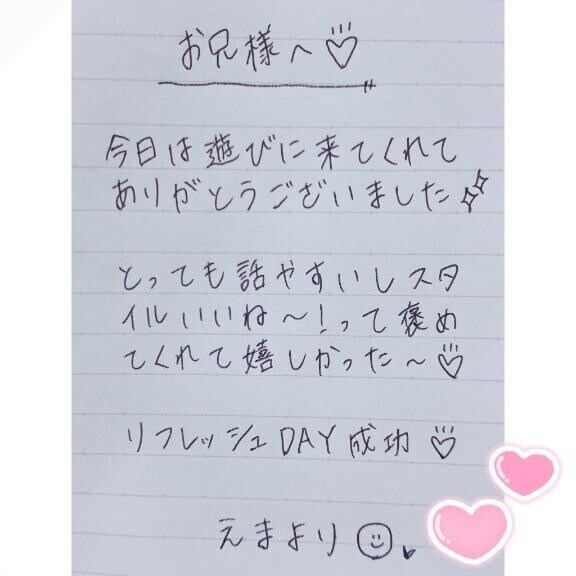 お兄様へ♡
今日は遊びに来てくれて
ありがとうございました✨
とっても話やすいしスタ
イルいいね〜!って褒め
てくれて嬉しかった〜♡
リフレッシュDAY成功♡
えまより☺